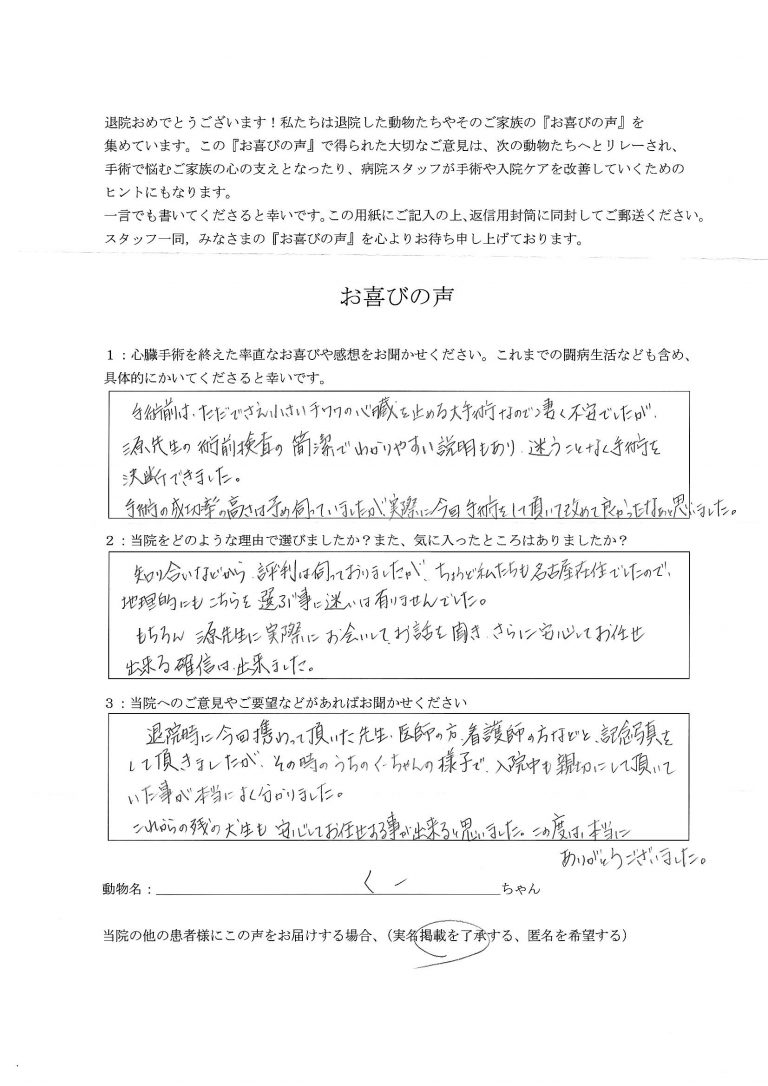 退院おめでとうございます！私たちは退院した動物たちやそのご家族の『お喜びの声』を
集めています。この『お喜びの声』で得られた大切なご意見は、次の動物たちへとリレーされ、
手術で悩むご家族の心の支えとなったり、病院スタッフが手術や入院ケアを改善していくための
ヒントにもなります。
一言でも書いてくださると幸いです。この用紙にご記入の上、返信用封筒に同封してご郵送ください。
スタッフ一同，みなさまの『お喜びの声』を心よりお待ち申し上げております。
お喜びの声
１：心臓手術を終えた率直なお喜びや感想をお聞かせください。これまでの闘病生活なども含め、
具体的にかいてくださると幸いです。
手術前は、ただでさえ小さいチワワの心臓を止める大手術なので凄く不安でしたが、
源先生の術前検査の簡潔でわかりやすい説明もあり、迷うことなく手術を
決断できました。
手術の成功率の高さは予め伺っていましたが、実際に今回手術をして頂いて改めて良かったなぁと思いました。
２：当院をどのような理由で選びましたか？また、気に入ったところはありましたか？
知り合いなどから、評判は伺っておりましたが、ちょうど私たちも名古屋在住でしたので、
地理的にもこちらを選ぶ事に迷いは有りませんでした。
もちろん源先生に実際にお会いして、お話を聞き、さらに安心してお任せ
出来る確信は、出来ました。
３：当院へのご意見やご要望などがあればお聞かせください
退院時に今回携わって頂いた先生、医師の方、看護師の方などと、記念写真を
して頂きましたが、その時のうちのくーちゃんの様子で、入院中も親切にして頂いて
いた事が本当によく分かりました。
これからの残の犬生も安心してお任せする事が出来ると思いました。この度は、本当に
ありがとうございました。
動物名：くーちゃん
当院の他の患者様にこの声をお届けする場合、（実名掲載を了承する、匿名を希望する）